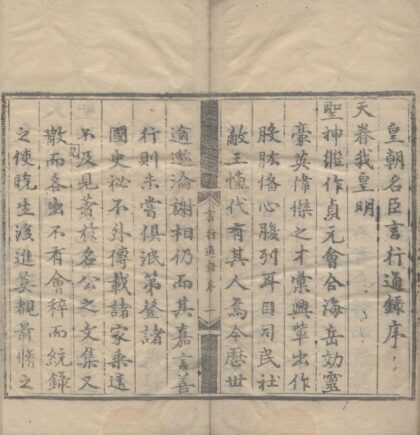 皇朝名臣言行通錄序
天眷我皇明
聖神繼作貞元會合海岳効靈
豪英偉傑之才彙興輩出作
股肱俻心腹列耳目司民社
敵王愾代有其人焉今歷世
言行通錄序
一
逾邈淪謝相仍而其嘉言善
行則未嘗俱泯第登諸
國史秘不外傳載諸家乘遠
不及見著於名公之文集又
散而各出不有會稡而統錄
之使晩生後進莫覩前脩之